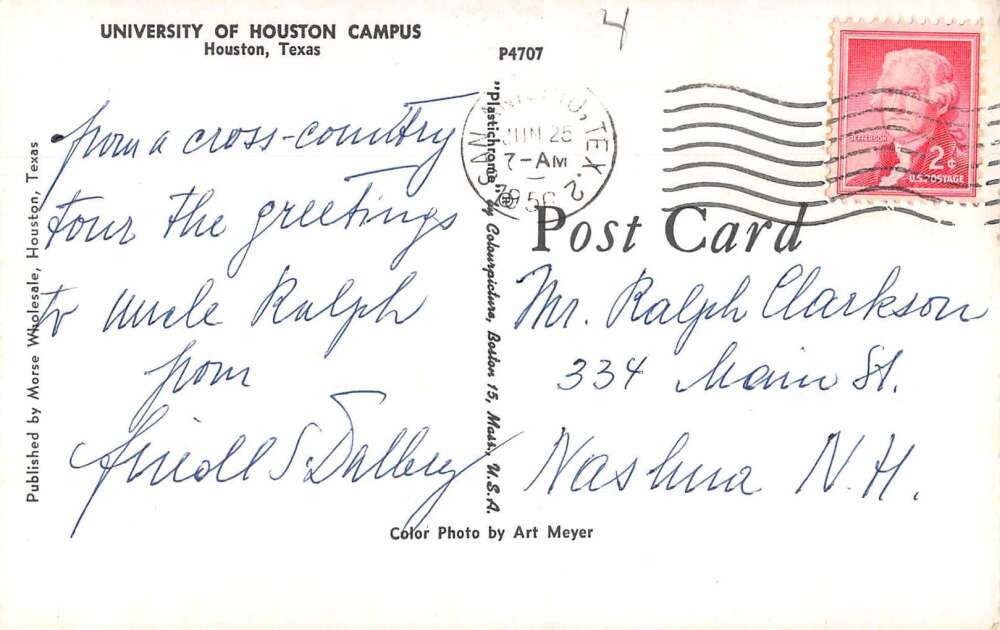 UNIVERSITY OF HOUSTON CAMPUS
Houston, Texas
P4707
4
from a cross-country
tour the greetings
to Uncle Ralph
from
S Dalbery
Published by Morse Wholesale, Houston, Texas
"Plastichrome" ® by Colourpicture, Boston 15, Mass., U.S.A.
TEX. 2
JUN 25
7-AM
JEFFERSON
2¢
U.S. POSTAGE
Post Card
Mr. Ralph Clarkson
334 Main St.
Nashua N.H.
Color Photo by Art Meyer